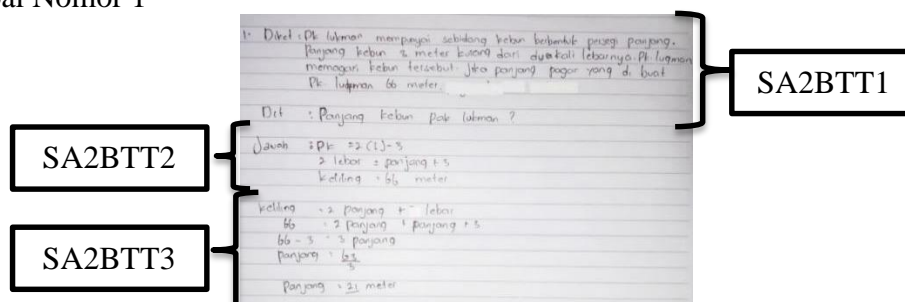 Nomor 1
1. Diket : Pk lukman mempunyai sebidang kebun berbentuk persegi panjang.
Panjang kebun 3 meter kurang dari dua kali lebarnya. Pk luqman
memagari kebun tersebut. Jika panjang pagar yang di buat
Pk lukman 66 meter.
Dit : Panjang kebun pak lukman ?
Jawab : Pk = 2 (l) - 3
2 lebar = panjang + 3
keliling = 66 meter
keliling = 2 panjang + lebar
66 = 2 panjang + panjang + 3
66 - 3 = 3 panjang
panjang = 63
3
Panjang = 21 meter
SA2BTT1
SA2BTT2
SA2BTT3